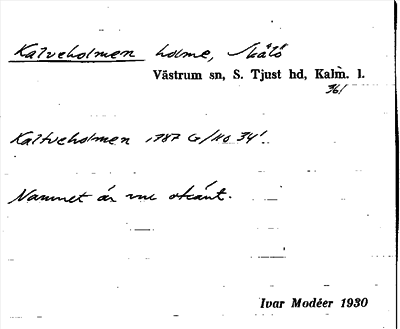 Kalveholmen holme, Skälö
Västrum sn, S. Tjust hd, Kalm. l.
361
Kaltveholmen 1787 G/H0 34'.
Namnet är nu okänt.
Ivar Modéer 1930